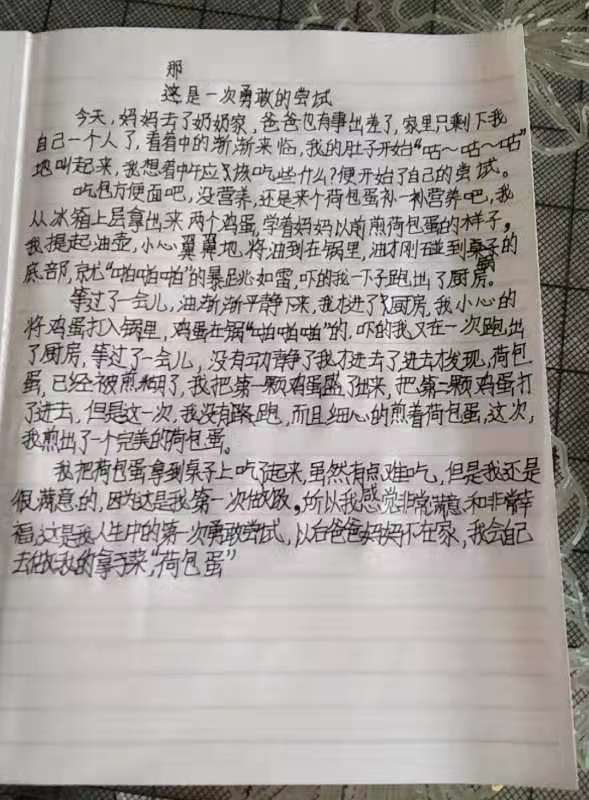 那
这是一次勇敢的尝试
今天,妈妈去了奶奶家,爸爸也有事出差了,家里只剩下我
自己一个人了,看着中的渐渐来临,我的肚子开始“咕~咕~咕”
地叫起来,我想着中午应该吃些什么?便开始了自己的尝试。
吃包方便面吧,没营养,还是来个荷包蛋补一补营养吧,我
从冰箱上层拿出来两个鸡蛋,学着妈妈以前煎荷包蛋的样子,
我提起油壶,小心翼翼地,将油到在锅里,油才刚碰到锅子的
底部,就“啪啪啪”的暴跳如雷,吓的我一下子跑出了厨房。
等过了一会儿,油渐渐平静下来,我才进了厨房,我小心的
将鸡蛋打入锅里,鸡蛋在锅“啪啪啪”的.吓的我又在一次跑出
了厨房,等过了一会儿,没有动静了我才进去了进去才发现,荷包
蛋,已经被煎糊了,我把第一颗鸡蛋盛了出来,把第二颗鸡蛋打
了进去,但是这一次,我没有跑,而且细心的煎着荷包蛋,这次,
我煎出了一个完美的荷包蛋。
我把荷包蛋拿到桌子上吃了起来,虽然有点难吃,但是我还是
很满意的,因为这是我第一次做饭,所以我感觉非常满意和非常幸
福,这是我人生中的第一次勇敢尝试,以后爸爸妈妈不在家,我会自己
去做我的拿手菜,“荷包蛋”